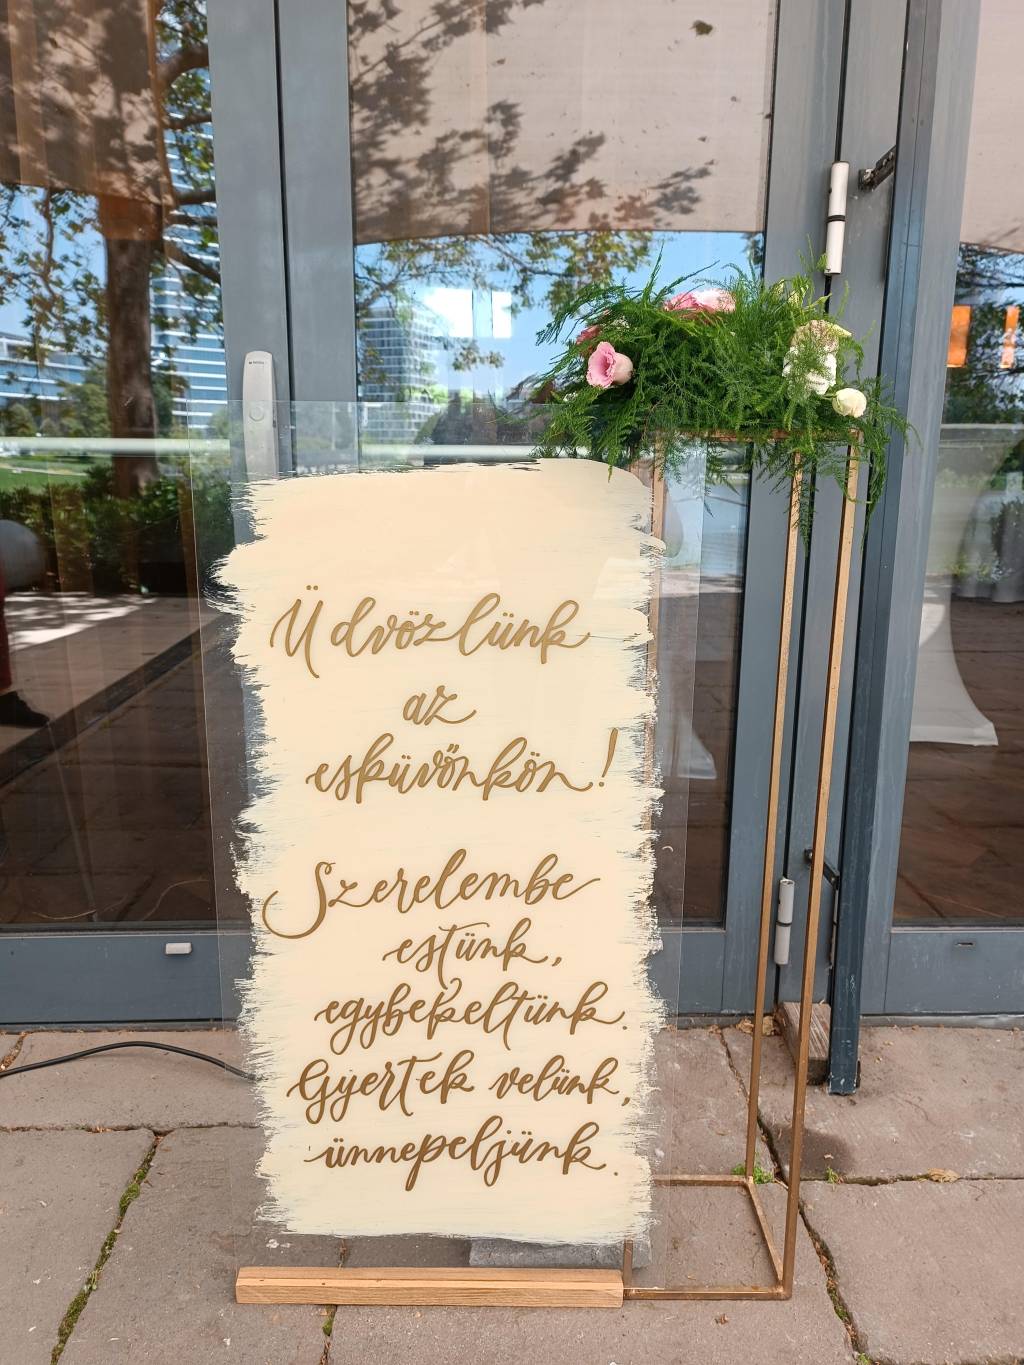 Üdvözlünk
az
esküvőnkön!
Szerelembe
estünk,
egybekeltünk.
Gyertek velünk,
ünnepeljünk.